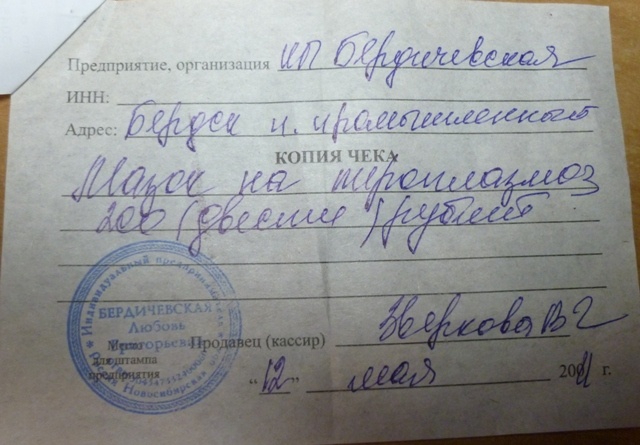 Предприятие, организация ИП Бердичевская
ИНН:
Адрес: Бердск п. промышленный
КОПИЯ ЧЕКА
Мазок на пироплазмоз
200 (двести) рублей
Индивидуальный предприниматель
БЕРДИЧЕВСКАЯ
Любовь
Григорьевна
Место
для штампа
предприятия
Продавец (кассир) Зверкова В Г
"12" мая 2011 г.